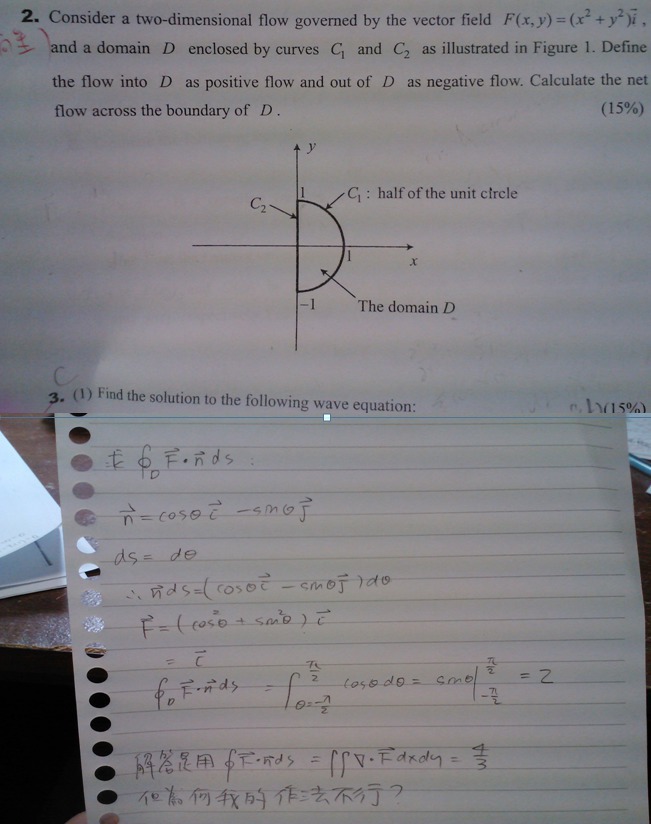 2. Consider a two-dimensional flow governed by the vector field F(x, y) = (x² + y²)i⃗ ,
and a domain D enclosed by curves C₁ and C₂ as illustrated in Figure 1. Define
the flow into D as positive flow and out of D as negative flow. Calculate the net
flow across the boundary of D. (15%)
y
1
C₁ : half of the unit circle
C₂
1
x
−1
The domain D
3. (1) Find the solution to the following wave equation: (15%)
求 ∮_D F⃗·n⃗ ds :
n⃗ = cosθ i⃗ − sinθ j⃗
ds = dθ
∴ n⃗ds = (cosθ i⃗ − sinθ j⃗)dθ
F⃗ = (cos²θ + sin²θ) i⃗
= i⃗
∮_D F⃗·n⃗ ds = ∫_{θ=−π/2}^{π/2} cosθ dθ = sinθ |_{−π/2}^{π/2} = 2
解答是用 ∮F⃗·n⃗ds = ∬∇·F⃗ dxdy = 4/3
但為何我的作法不行?